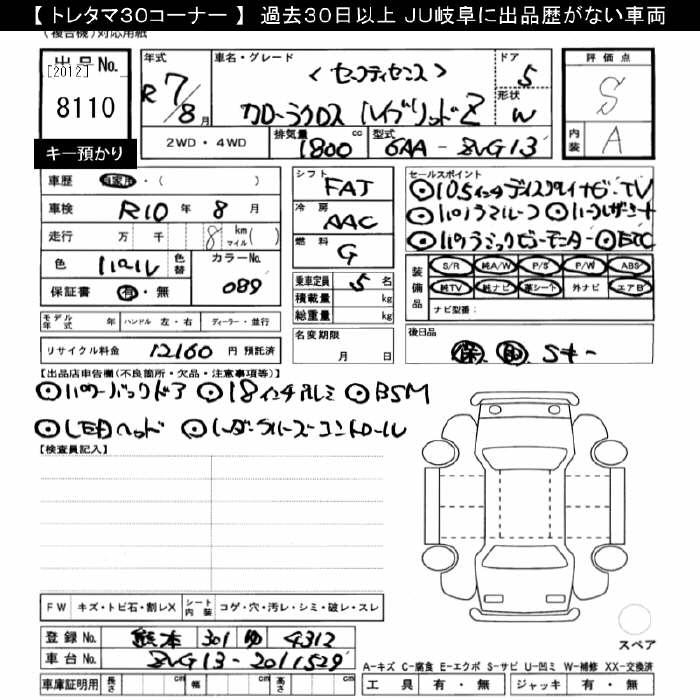 【 トレタマ30コーナー 】 過去30日以上 JU岐阜に出品歴がない車両
(複合機)対応用紙
出品No. [2012] 8110
キー預かり
年式 R7/8月
車名・グレード <セーフティセンス> カローラクロス ハイブリッドZ
ドア 5
形状 W
評価点 S
内装 A
2WD・4WD 排気量 1800 cc 型式 6AA-ZVG13
車歴 自家用・( )
車検 R10年 8月
走行 万 千 8 km マイル( )
色 パール 色替 カラーNo. 089
保証書 有・無
シフト FAT
冷房 AAC
燃料 G
乗車定員 5名
積載量 kg
総重量 kg
セールスポイント
◎10.5インチディスプレイナビ・TV
◎パノラマルーフ ◎ハーフレザーシート
◎パノラミックビューモニター ◎ETC
装備品 S/R 純A/W P/S P/W ABS
純TV 純ナビ 革シート 外ナビ エアB
ナビ型番:
モデル年式 年 ハンドル 左・右 ディーラー・並行
リサイクル料金 12160 円 預託済
名変期限 月 日
後日品 保 取 Sキー
【出品店申告欄(不良箇所・欠品・注意事項等)】
◎パワーバックドア ◎18インチアルミ ◎BSM
◎LEDヘッド ◎レーダークルーズコントロール
【検査員記入】
FW キズ・トビ石・割レX シート内装 コゲ・穴・汚レ・シミ・破レ・スレ
登録No. 熊本 301 ゆ 4312
車台No. ZVG13-2011529
車庫証明用 長さ cm 幅 cm 高さ cm
スペア
A-キズ C-腐食 E-エクボ S-サビ U-凹ミ W-補修 XX-交換済
工具 有・無 ジャッキ 有・無